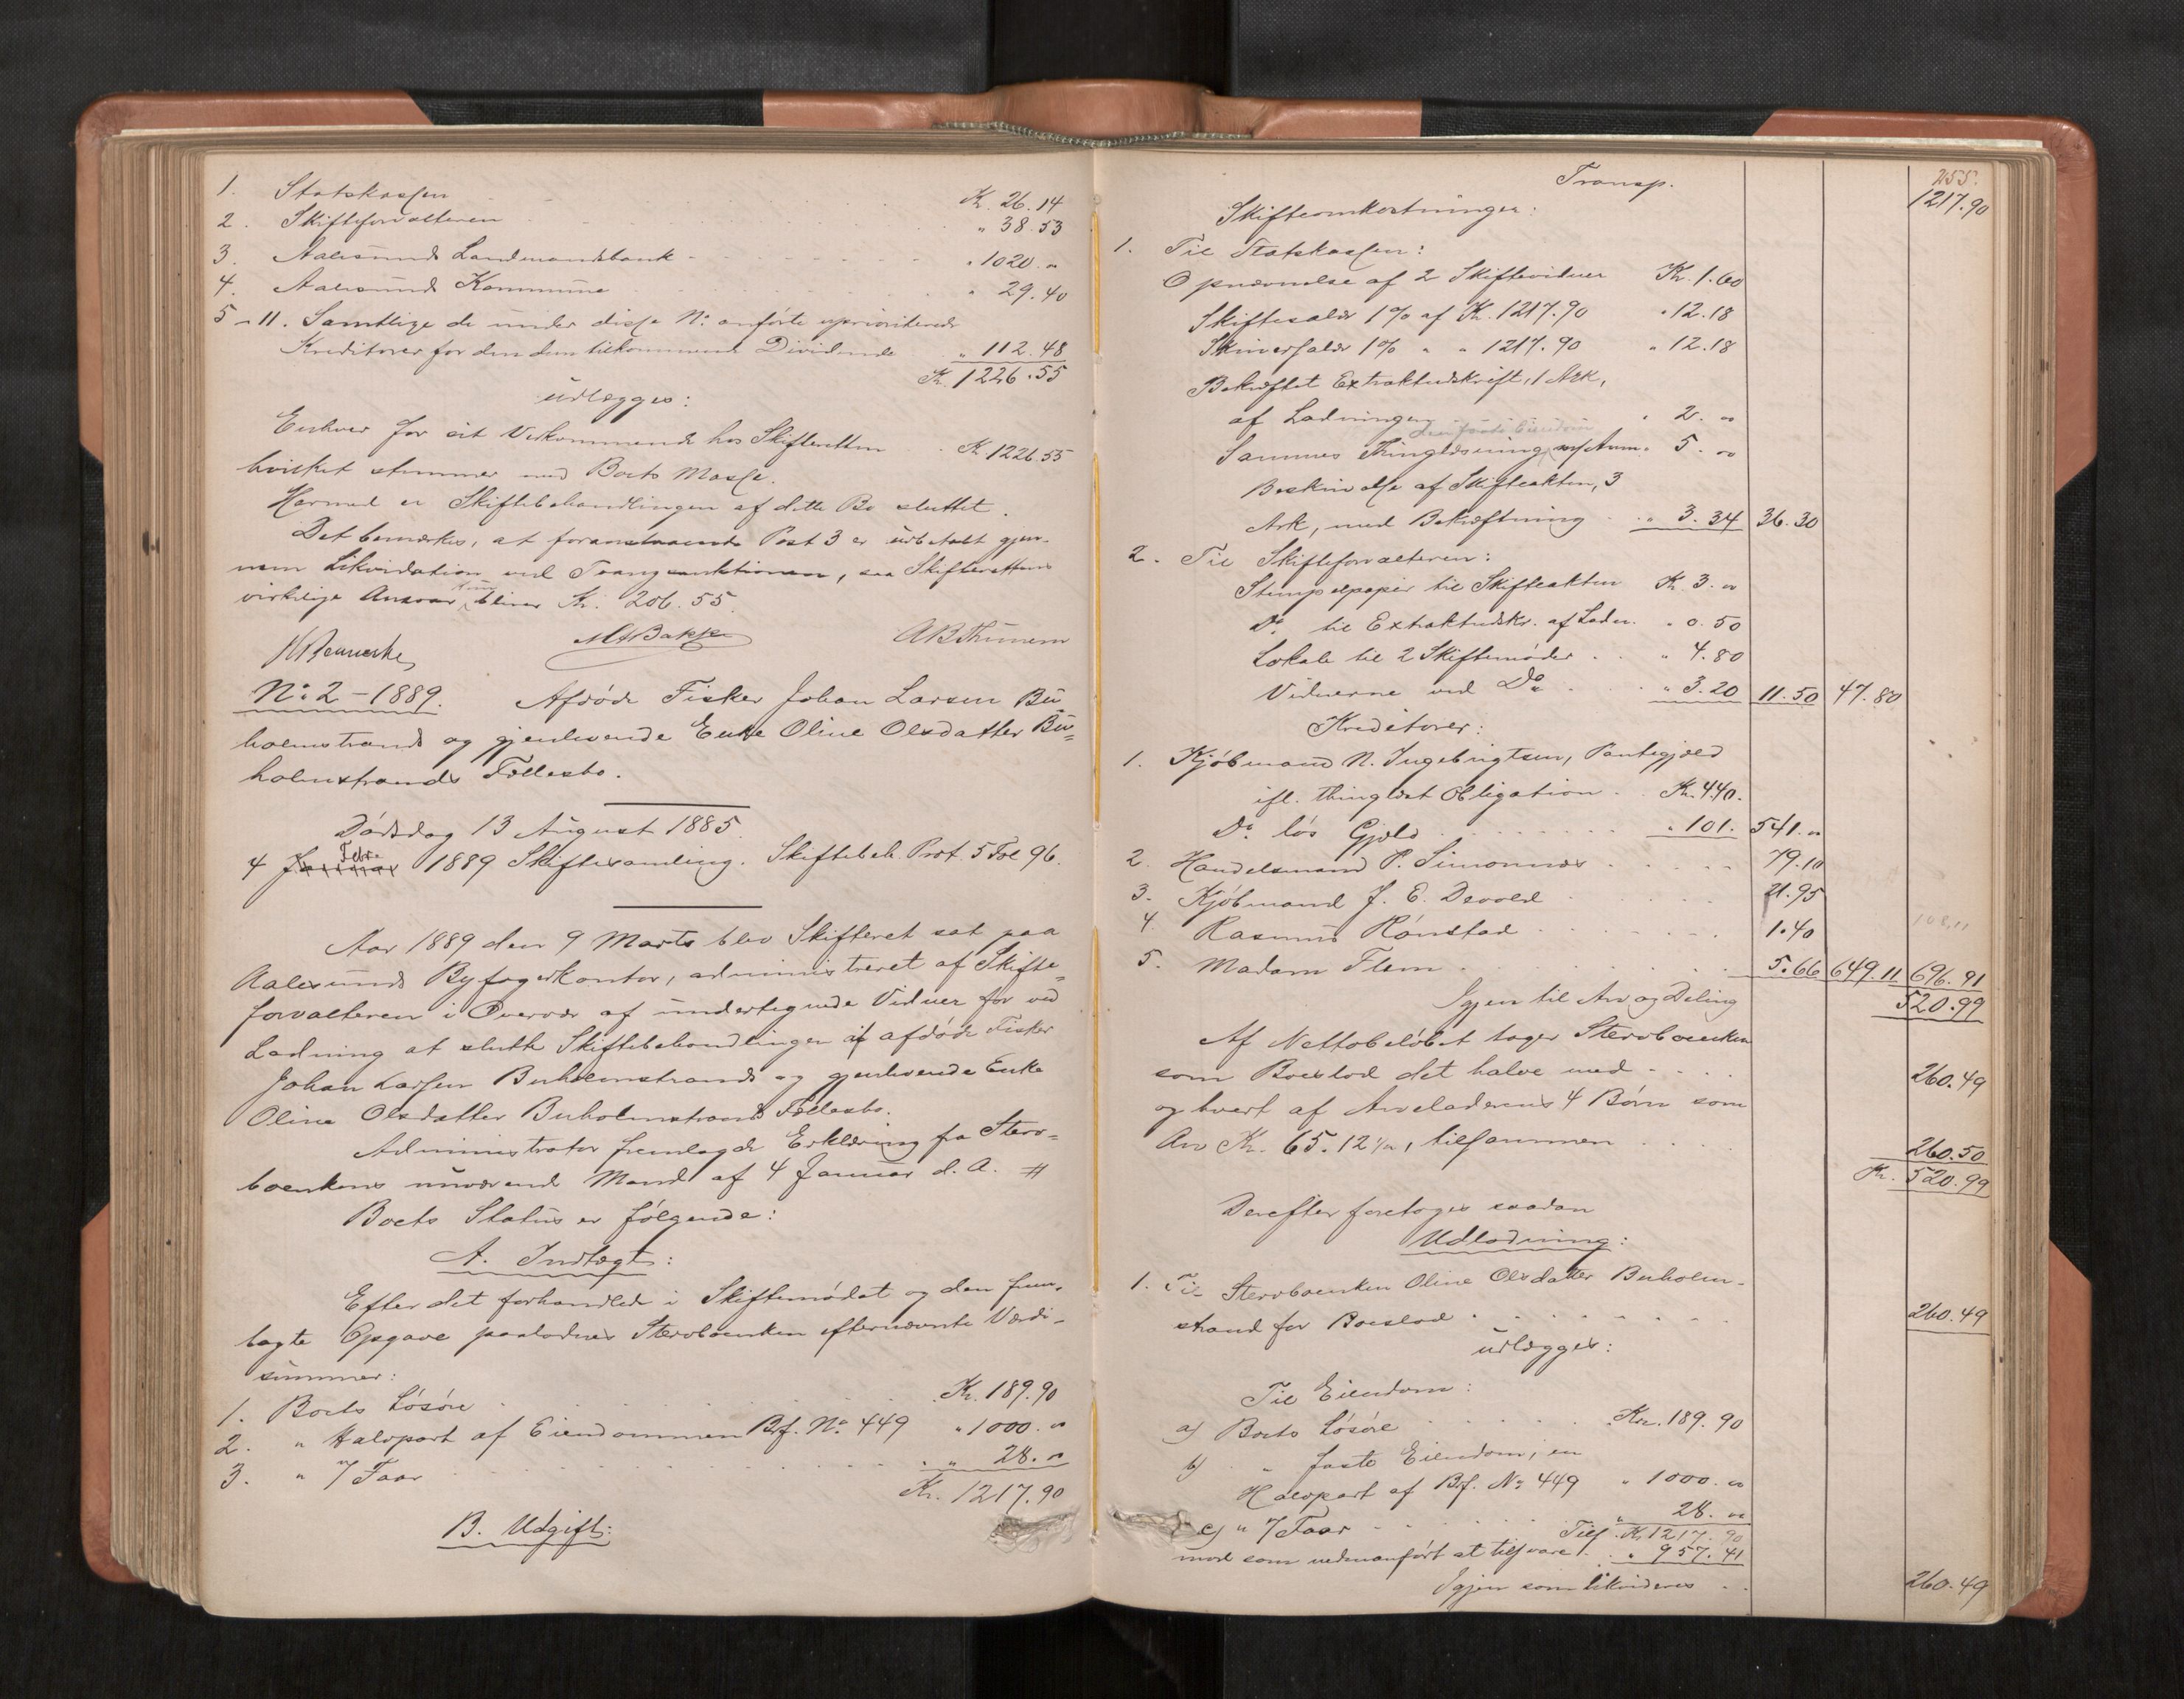 1. Statskassen Kr. 26.14
2. Skifteforvalteren " 38.53
3. Aalesunds Landmandsbank " 1020. "
4. Aalesunds Kommune " 29.40
5-11. Samtlige de under disse No: anførte uprioriterede
Kreditorer for den dem tilkommende Dividende " 112.48
Kr. 1226.55
udlægges:
Enhver for sit Vedkommende hos Skifteretten Kr. 1226.55
hvilket stemmer med Boets Masse.
Hermed er Skiftebehandlingen af dette Bo sluttet.
Det bemærkes, at foranstaaende Post 3 er udbetalt gjen-
nem Likvidation ved Tvangsauktionen, saa Skifterettens
virkelige Ansvar kun bliver Kr. 206.55.
MBakke ABThunem
No: 2 - 1889. Afdøde Fisker Johan Larsen Bu-
holmstrands og gjenlevende Enke Oline Olsdatter Bu=
holmstrands Fællesbo.
Dødsdag 13 August 1885.
4 Januar Febr. 1889 Skiftesamling. Skiftebeh. Prot. 5 Fol 96.
Aar 1889 den 9 Marts blev Skifteret sat paa
Aalesunds Byfogedkontor, administreret af Skifte=
forvalteren i Overvær af undertegnede Vidner for ved
Lodning at slutte Skiftebehandlingen af afdøde Fisker
Johan Larsen Buholmstrands og gjenlevende Enke
Oline Olsdatter Buholmstrands Fællesbo.
Administrator fremlagde Erklæring fra Sterv=
boenkens nuværende Mand af 4 Januar d. A. #
Boets Status er følgende:
A. Indtægt:
Efter det forhandlede i Skiftemødet og den frem-
lagte Opgave paalodnes Stervboenken efternævnte Værdi-
summer:
1. Boets Løsøre Kr. 189.90
2. " Halvpart af Eiendommen Brf. No: 449 " 1000. "
3. " 7 Faar " 28. "
Kr. 1217.90
B. Udgift:
255.
Transp. 1217.90
Skifteomkostninger:
1. Til Statskassen:
Opnævnelse af 2 Skiftevidner Kr. 1.60
Skiftesalær 1% af Kr. 1217.90 " 12.18
Skriversalær 1% " " 1217.90 " 12.18
Bekræftet Extraktudskrift, 1 Ark,
af Lodningen " 2. "
den faste Eiendom
Sammes Thinglæsning m/Anm. 5. "
Beskrivelse af Skifteakten, 3
Ark, med Bekræftning " 3.34 36.30
2. Til Skifteforvalteren:
Stempelpapir til Skifteakten Kr. 3. "
Do. til Extraktudskr. af Lodn. " 0.50
Lokale til 2 Skiftemøder " 4.80
Vidnerne ved Do. " 3.20 11.50 47.80
Kreditorer:
1. Kjøbmand N. Ingebrigtsen, Pantegjæld
ifl. thinglæst Obligation Kr. 440.
Do. løs Gjæld " 101. 541. "
2. Handelsmand P. Simonnæs 79.10
3. Kjøbmand J. E. Devold 21.95
4. Rasmus Rønstad 1.40
5. Madam Flem 5.66 649.11 696.91
Igjen til Arv og Deling 520.99
Af Nettobeløbet tager Stervboenken
som Boeslod det halve med 260.49
og hvert af Arveladerens 4 Børn som
Arv Kr. 65.12½, tilsammen 260.50
Kr. 520.99
Derefter foretoges saadan
Udlodning:
1. Til Stervboenken Oline Olsdatter Buholm-
strand for Boeslod 260.49
udlægges:
Til Eiendom:
a) Boets Løsøre Kr. 189.90
b) " faste Eiendom, en
Halvpart af Brf. No: 449 " 1000. "
c) " 7 Faar " 28. "
Tils. Kr. 1217.90
mod som nedenanført at tilsvare " 957.41
Igjen som likvideres 260.49